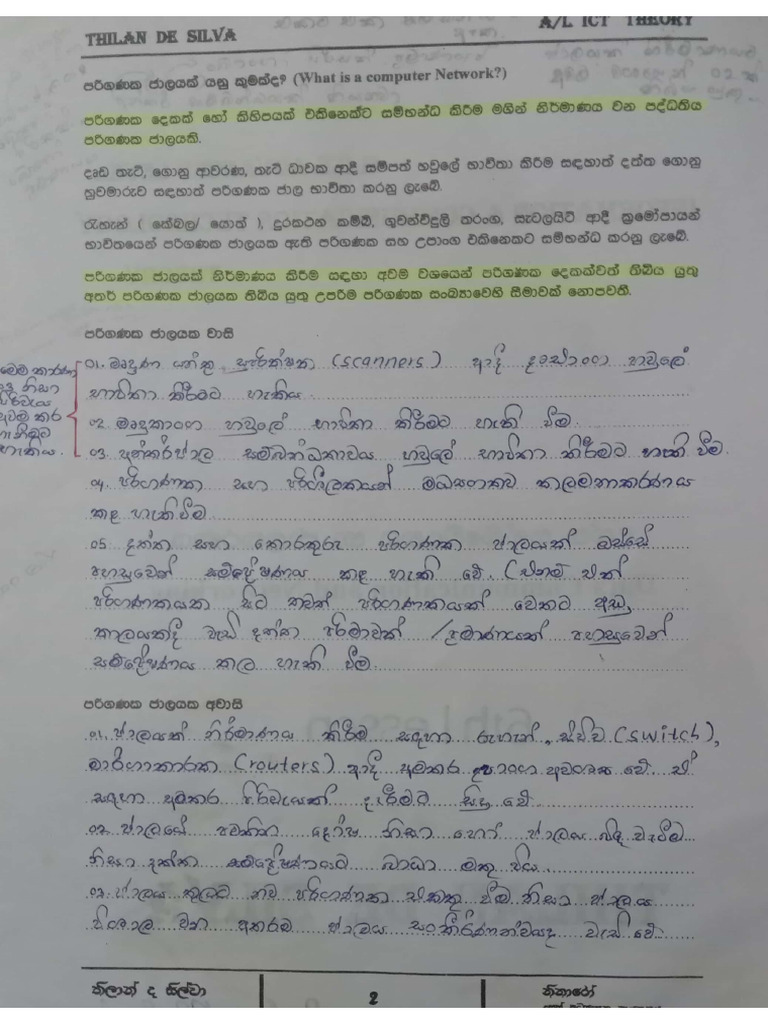 THILAN DE SILVA
A/L ICT THEORY
පරිගණක ජාලයක් යනු කුමක්ද? (What is a computer Network?)
පරිගණක දෙකක් හෝ කිහිපයක් එකිනෙකට සම්භන්ධ කිරීම මගින් නිර්මාණය වන පද්ධතිය
පරිගණක ජාලයකි.
දෘඩ තැටි, ගොනු ආවරණ, තැටි ධාවක ආදී සම්පත් හවුලේ භාවිතා කිරීම සඳහාත් දත්ත ගොනු
හුවමාරුව සඳහාත් පරිගණක ජාල භාවිතා කරනු ලැබේ.
රැහැන් ( කේබල/ යොත් ), දුරකථන කම්බි, ගුවන්විදුලි තරංග, සැටලයිට් ආදී ක්‍රමෝපායන්
භාවිතයෙන් පරිගණක ජාලයක ඇති පරිගණක සහ උපාංග එකිනෙකට සම්භන්ධ කරනු ලැබේ.
පරිගණක ජාලයක් නිර්මාණය කිරීම සඳහා අවම වශයෙන් පරිගණක දෙකක්වත් තිබිය යුතු
අතර් පරිගණක ජාලයක තිබිය යුතු උපරිම පරිගණක සංඛ්‍යාවෙහි සීමාවක් නොපවතී.
පරිගණක ජාලයක වාසි
01. මුද්‍රණ යන්ත්‍ර, සුපරික්ෂක (scanners) ආදී දෘඩාංග හවුලේ
භාවිතා කිරීමට හැකිය
මෙම කාරණා
නිසා
පිරිවැය
අවම කර
ගැනීමට
හැකිය.
02. මෘදුකාංග හවුලේ භාවිතා කිරීමට හැකි වීම.
03. අන්තර්ජාල සම්බන්ධතාවය හවුලේ භාවිතා කිරීමට හැකි වීම.
04. පරිගණක සහ පරිශීලකයන් මධ්‍යගතව කාලමනාකරණය
කළ හැකිවීම
05. දත්ත සහ තොරතුරු පරිගණක ජාලයක් ඔස්සේ
පහසුවෙන් සම්ප්‍රේෂණය කළ හැකි වේ. (එනම් එක්
පරිගණකයක සිට තවත් පරිගණකයක් වෙතට අඩු
කාලයකදී වැඩි දත්ත පරිමාවක් /ප්‍රමාණයක් පහසුවෙන්
සම්ප්‍රේෂණය කල හැකි වීම.
පරිගණක ජාලයක අවාසි
01. ජාලයක් නිර්මාණය කිරීම සඳහා රුහැන්, ස්විච (switch),
මාර්ගාකාරක (routers) ආදී අමතර උපාංග අවශ්‍ය වේ. ඒ
සඳහා අමතර පිරිවැයක් දැරීමට සිදු වේ
02. ජාලයේ පවතින දෝෂ නිසා හෝ ජාලය බිඳ වැටීම
නිසා දත්ත සම්ප්‍රේෂණයට බාධා මතු විය.
03. ජාලය තුලට නව පරිගණක එකතු වීම නිසා ජාලය
විශාල වන අතරම ජාලය සංකීර්ණත්වයද වැඩි වේ.
තිලාන් ද සිල්වා
2
තිසාරෝ